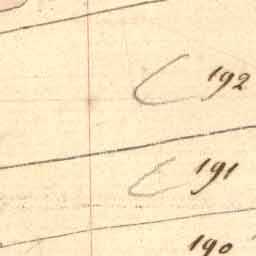 192
191
190